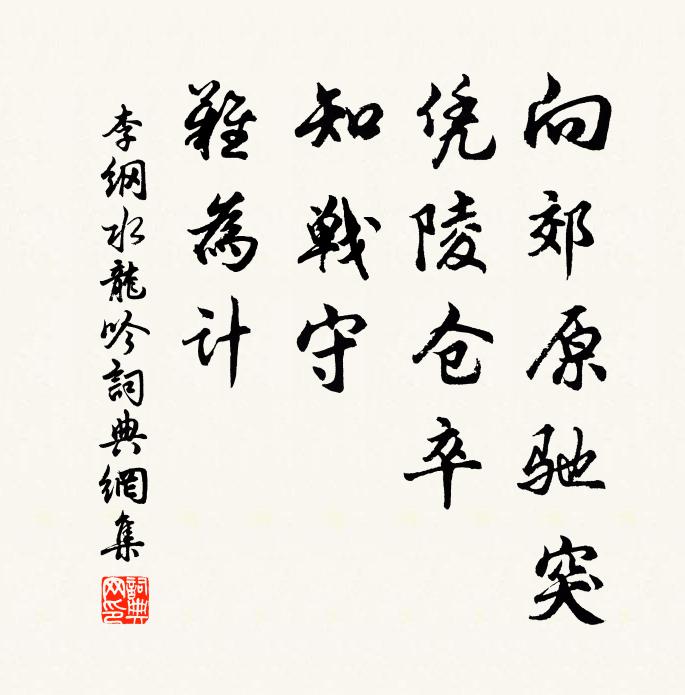 向郊原驰突
凭陵仓卒
知戰守
難為计
李綱水龍吟詞典網集
詞典网印